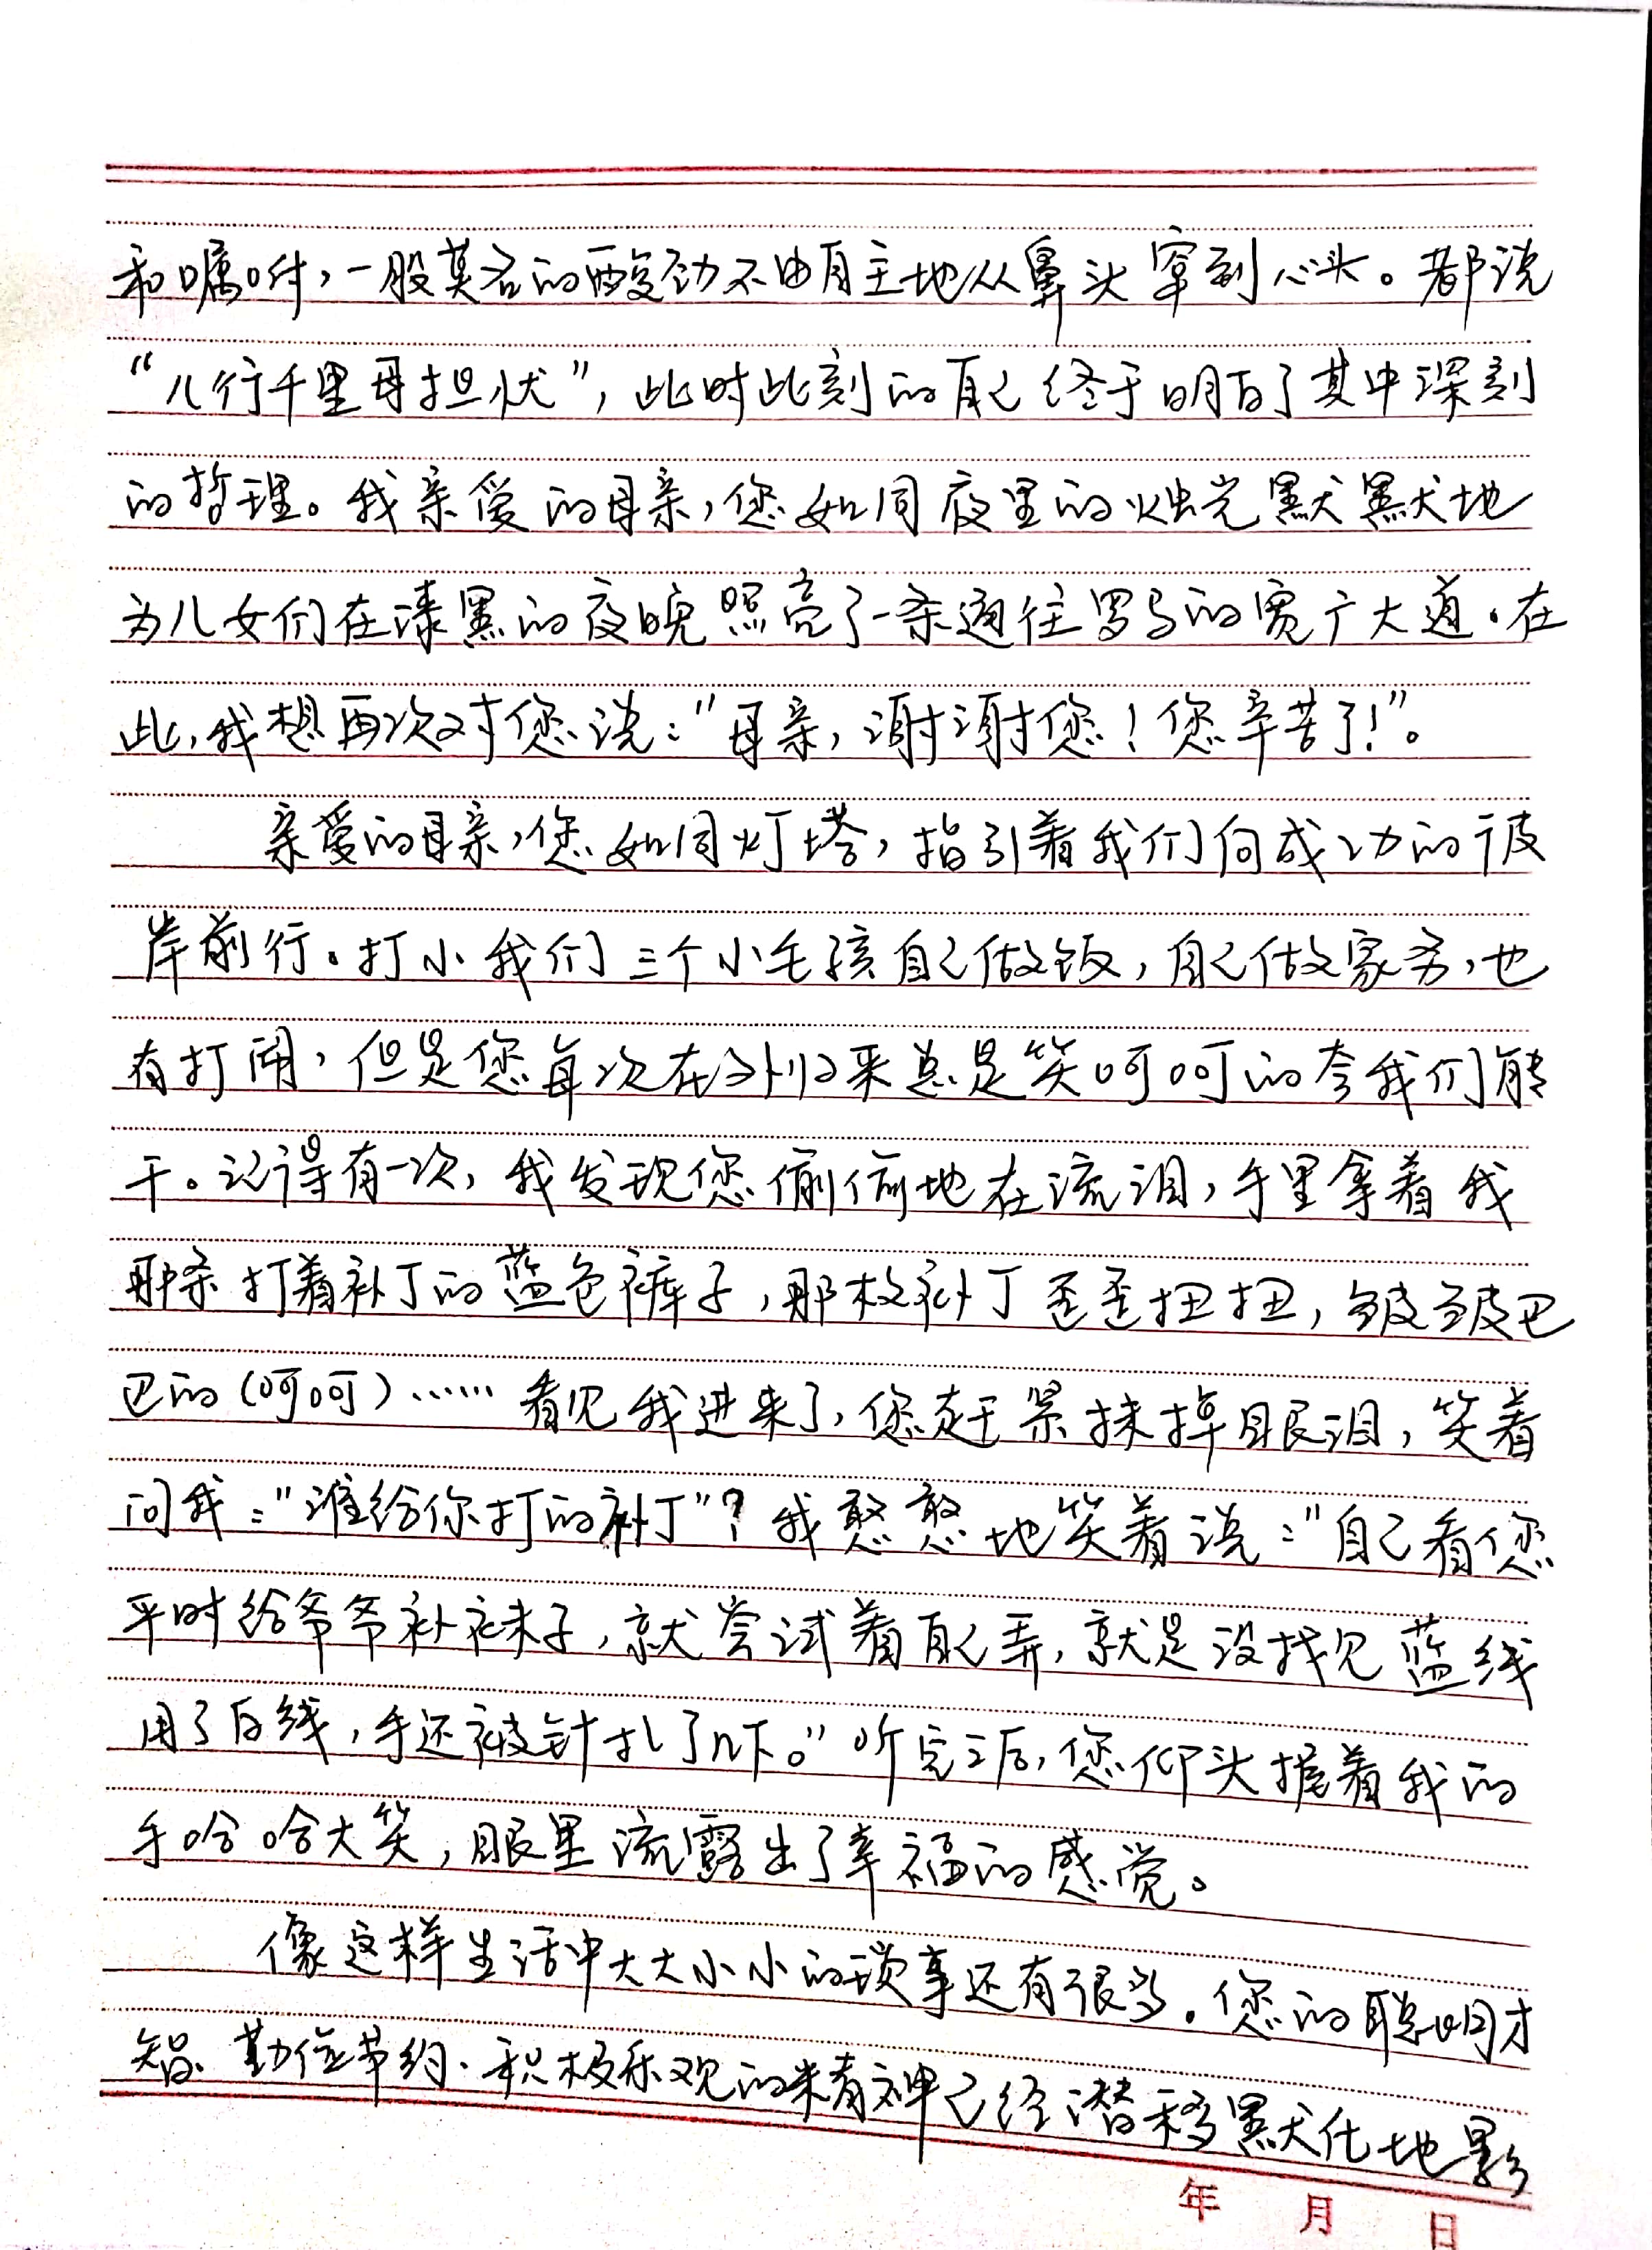 和嘱咐，一股莫名的酸劲不由自主地从鼻头窜到心头。都说
“儿行千里母担忧”，此时此刻的自己终于明白了其中深刻
的哲理。我亲爱的母亲，您如同夜里的烛光默默地
为儿女们在漆黑的夜晚照亮了一条通往罗马的宽广大道。在
此，我想再次对您说：“母亲，谢谢您！您辛苦了！”。
亲爱的母亲，您如同灯塔，指引着我们向成功的彼
岸前行。打小我们三个小毛孩自己做饭，自己做家务，也
有打闹，但是您每次在外归来总是笑呵呵的夸我们能
干。记得有一次，我发现您偷偷地在流泪，手里拿着我
那条打着补丁的蓝色裤子，那枚补丁歪歪扭扭，皱皱巴
巴的（呵呵）……看见我进来了，您赶紧抹掉眼泪，笑着
问我：“谁给你打的补丁”？我憨憨地笑着说：“自己看您
平时给爷爷补袜子，就尝试着自己弄，就是没找见蓝线
用了白线，手还被针扎了几下。”听完之后，您仰头握着我的
手哈哈大笑，眼里流露出了幸福的感觉。
像这样生活中大大小小的琐事还有很多。您的聪明才
智、勤俭节约、积极乐观的精神已经潜移默化地影
年 月 日